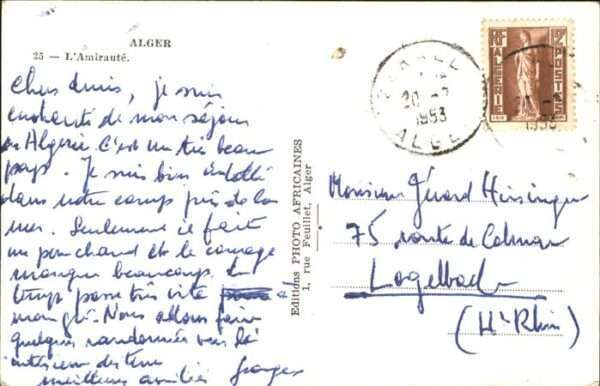 ALGER
25 — L'Amirauté.
Chers amis, je suis
enchanté de mon séjour
en Algérie. C'est un très beau
pays. Je suis bien installé
dans notre camp près de la
mer. Seulement il fait
un peu chaud et le courage
manque beaucoup. Le
temps passe très vite
malgré. Nous allons faire
quelques randonnées vers l'
intérieur des terres
meilleures amitiés Georges
Editions PHOTO AFRICAINES
1, rue Feuillet, Alger
ALGERIE
POSTES
1953
ALGER
Monsieur Gérard Hirsinger
75, route de Colmar
Logelbach
(Ht Rhin)